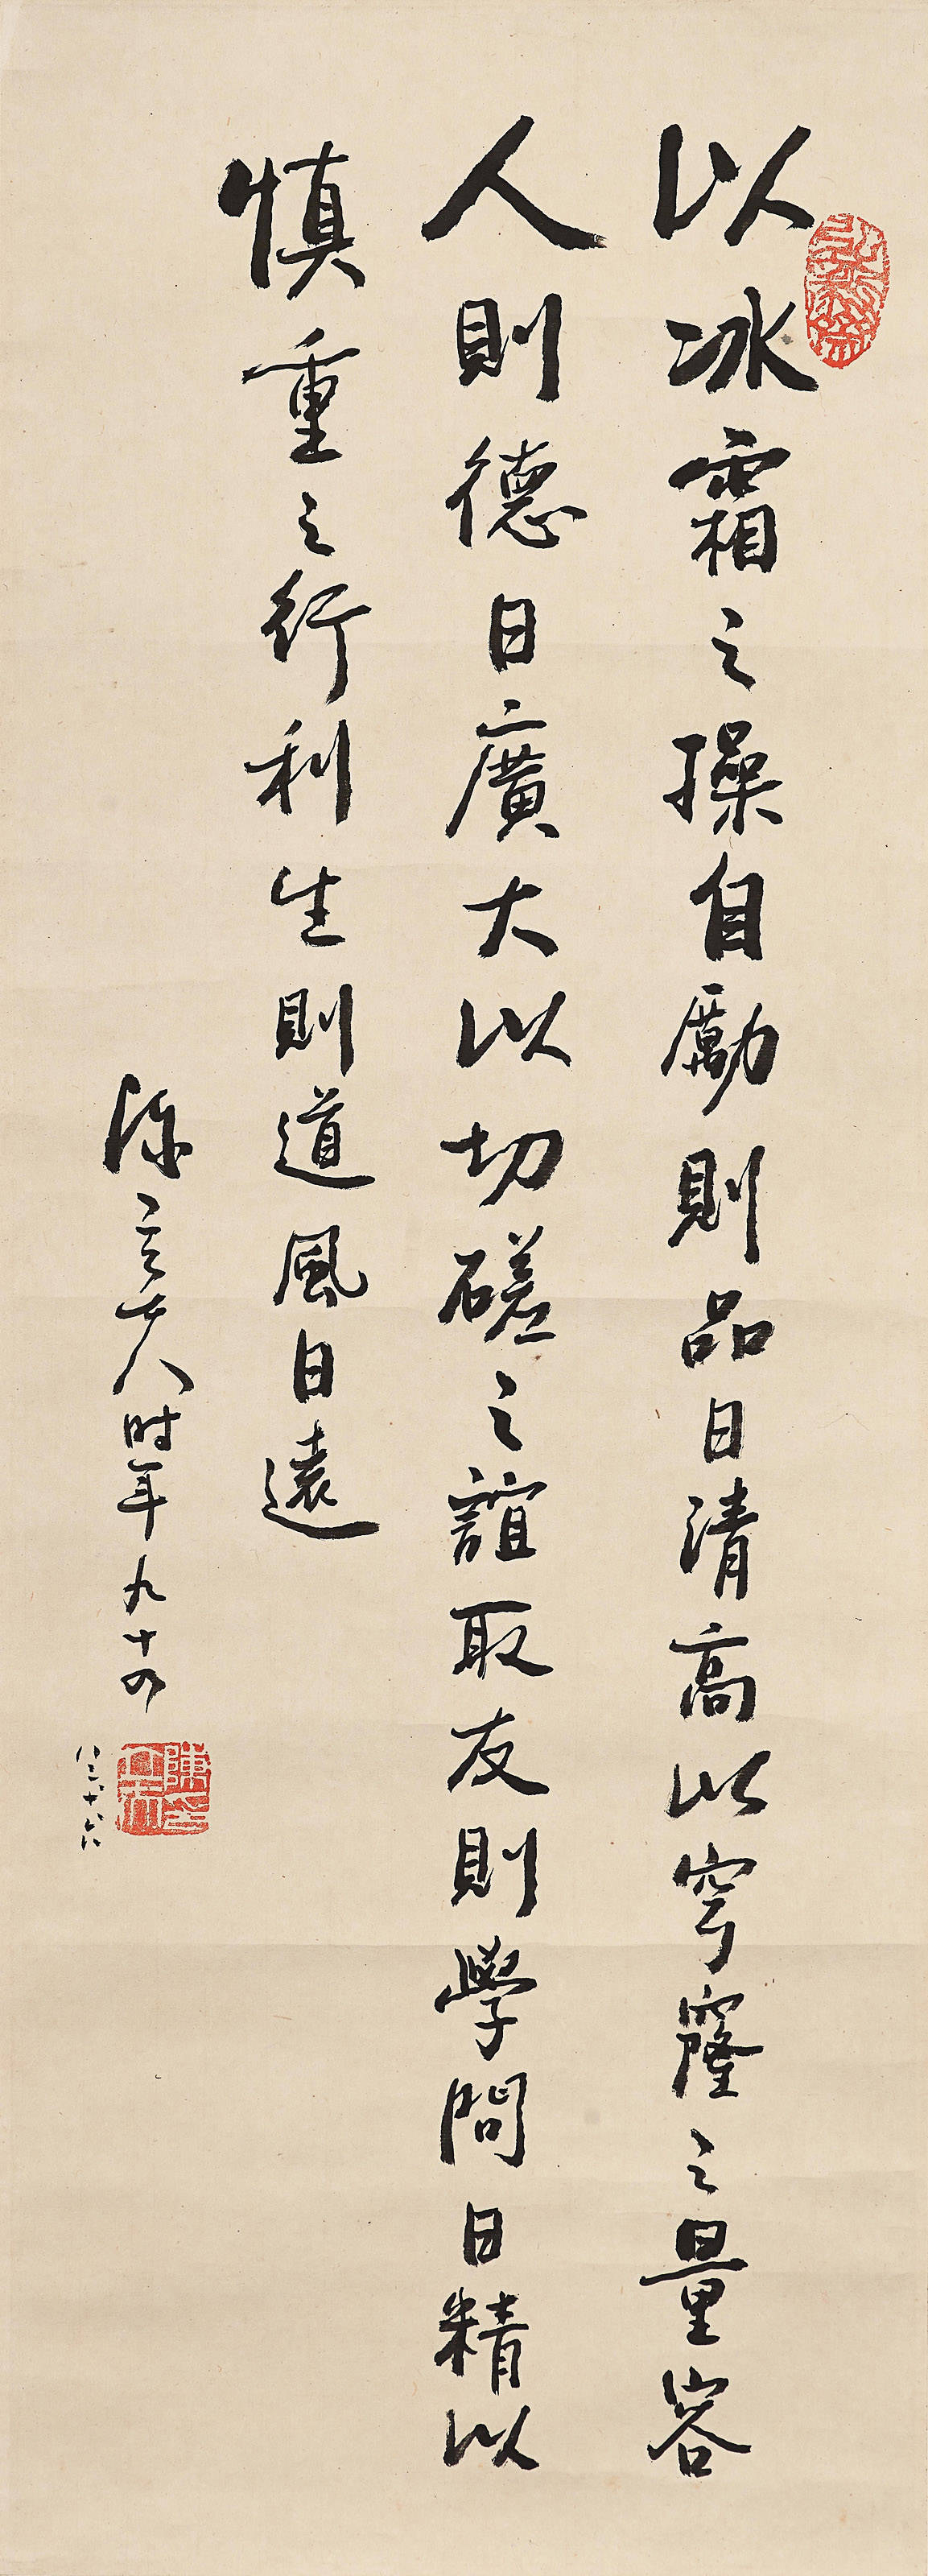 弘毅齋
以冰霜之操自勵則品日清高以穹窿之量容
人則德日廣大以切磋之誼取友則學問日精以
慎重之行利生則道風日遠
陳立夫时年九十四
陳立夫印